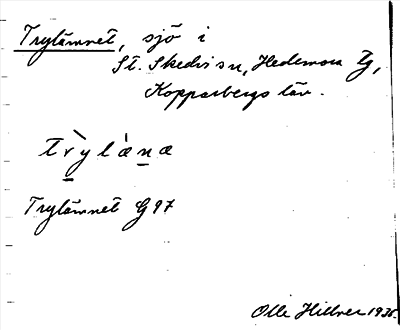 Trytärnet, sjö i
St. Skedvi sn, Hedemora tg,
Kopparbergs län.
Trytärnet G 97
Olle Hillver